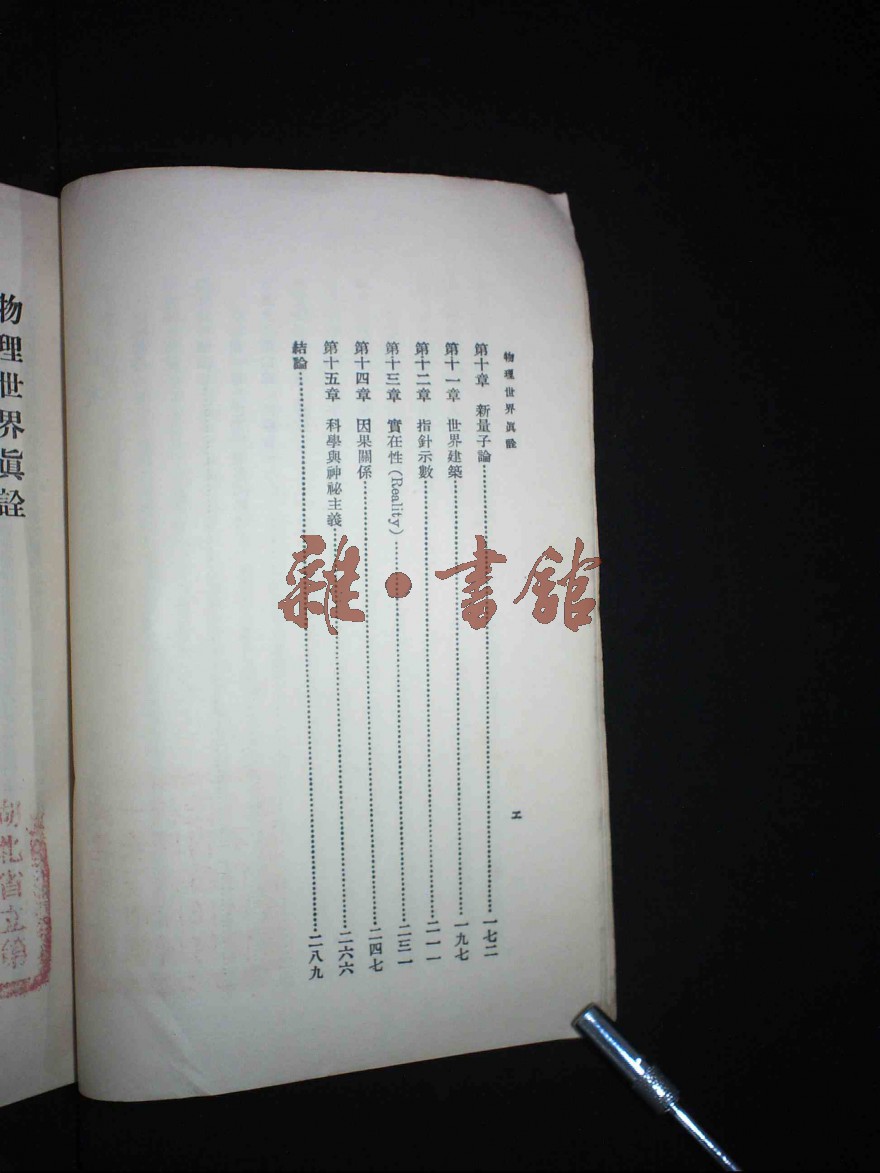 物理世界眞詮
工
第十章 新量子論 一七二
第十一章 世界建築 一九七
第十二章 指針示數 二一一
第十三章 實在性(Reality) 二三一
第十四章 因果關係 二四七
第十五章 科學與神祕主義 二六六
結論 二八九
雜·書館
物理世界眞詮
湖北省立第